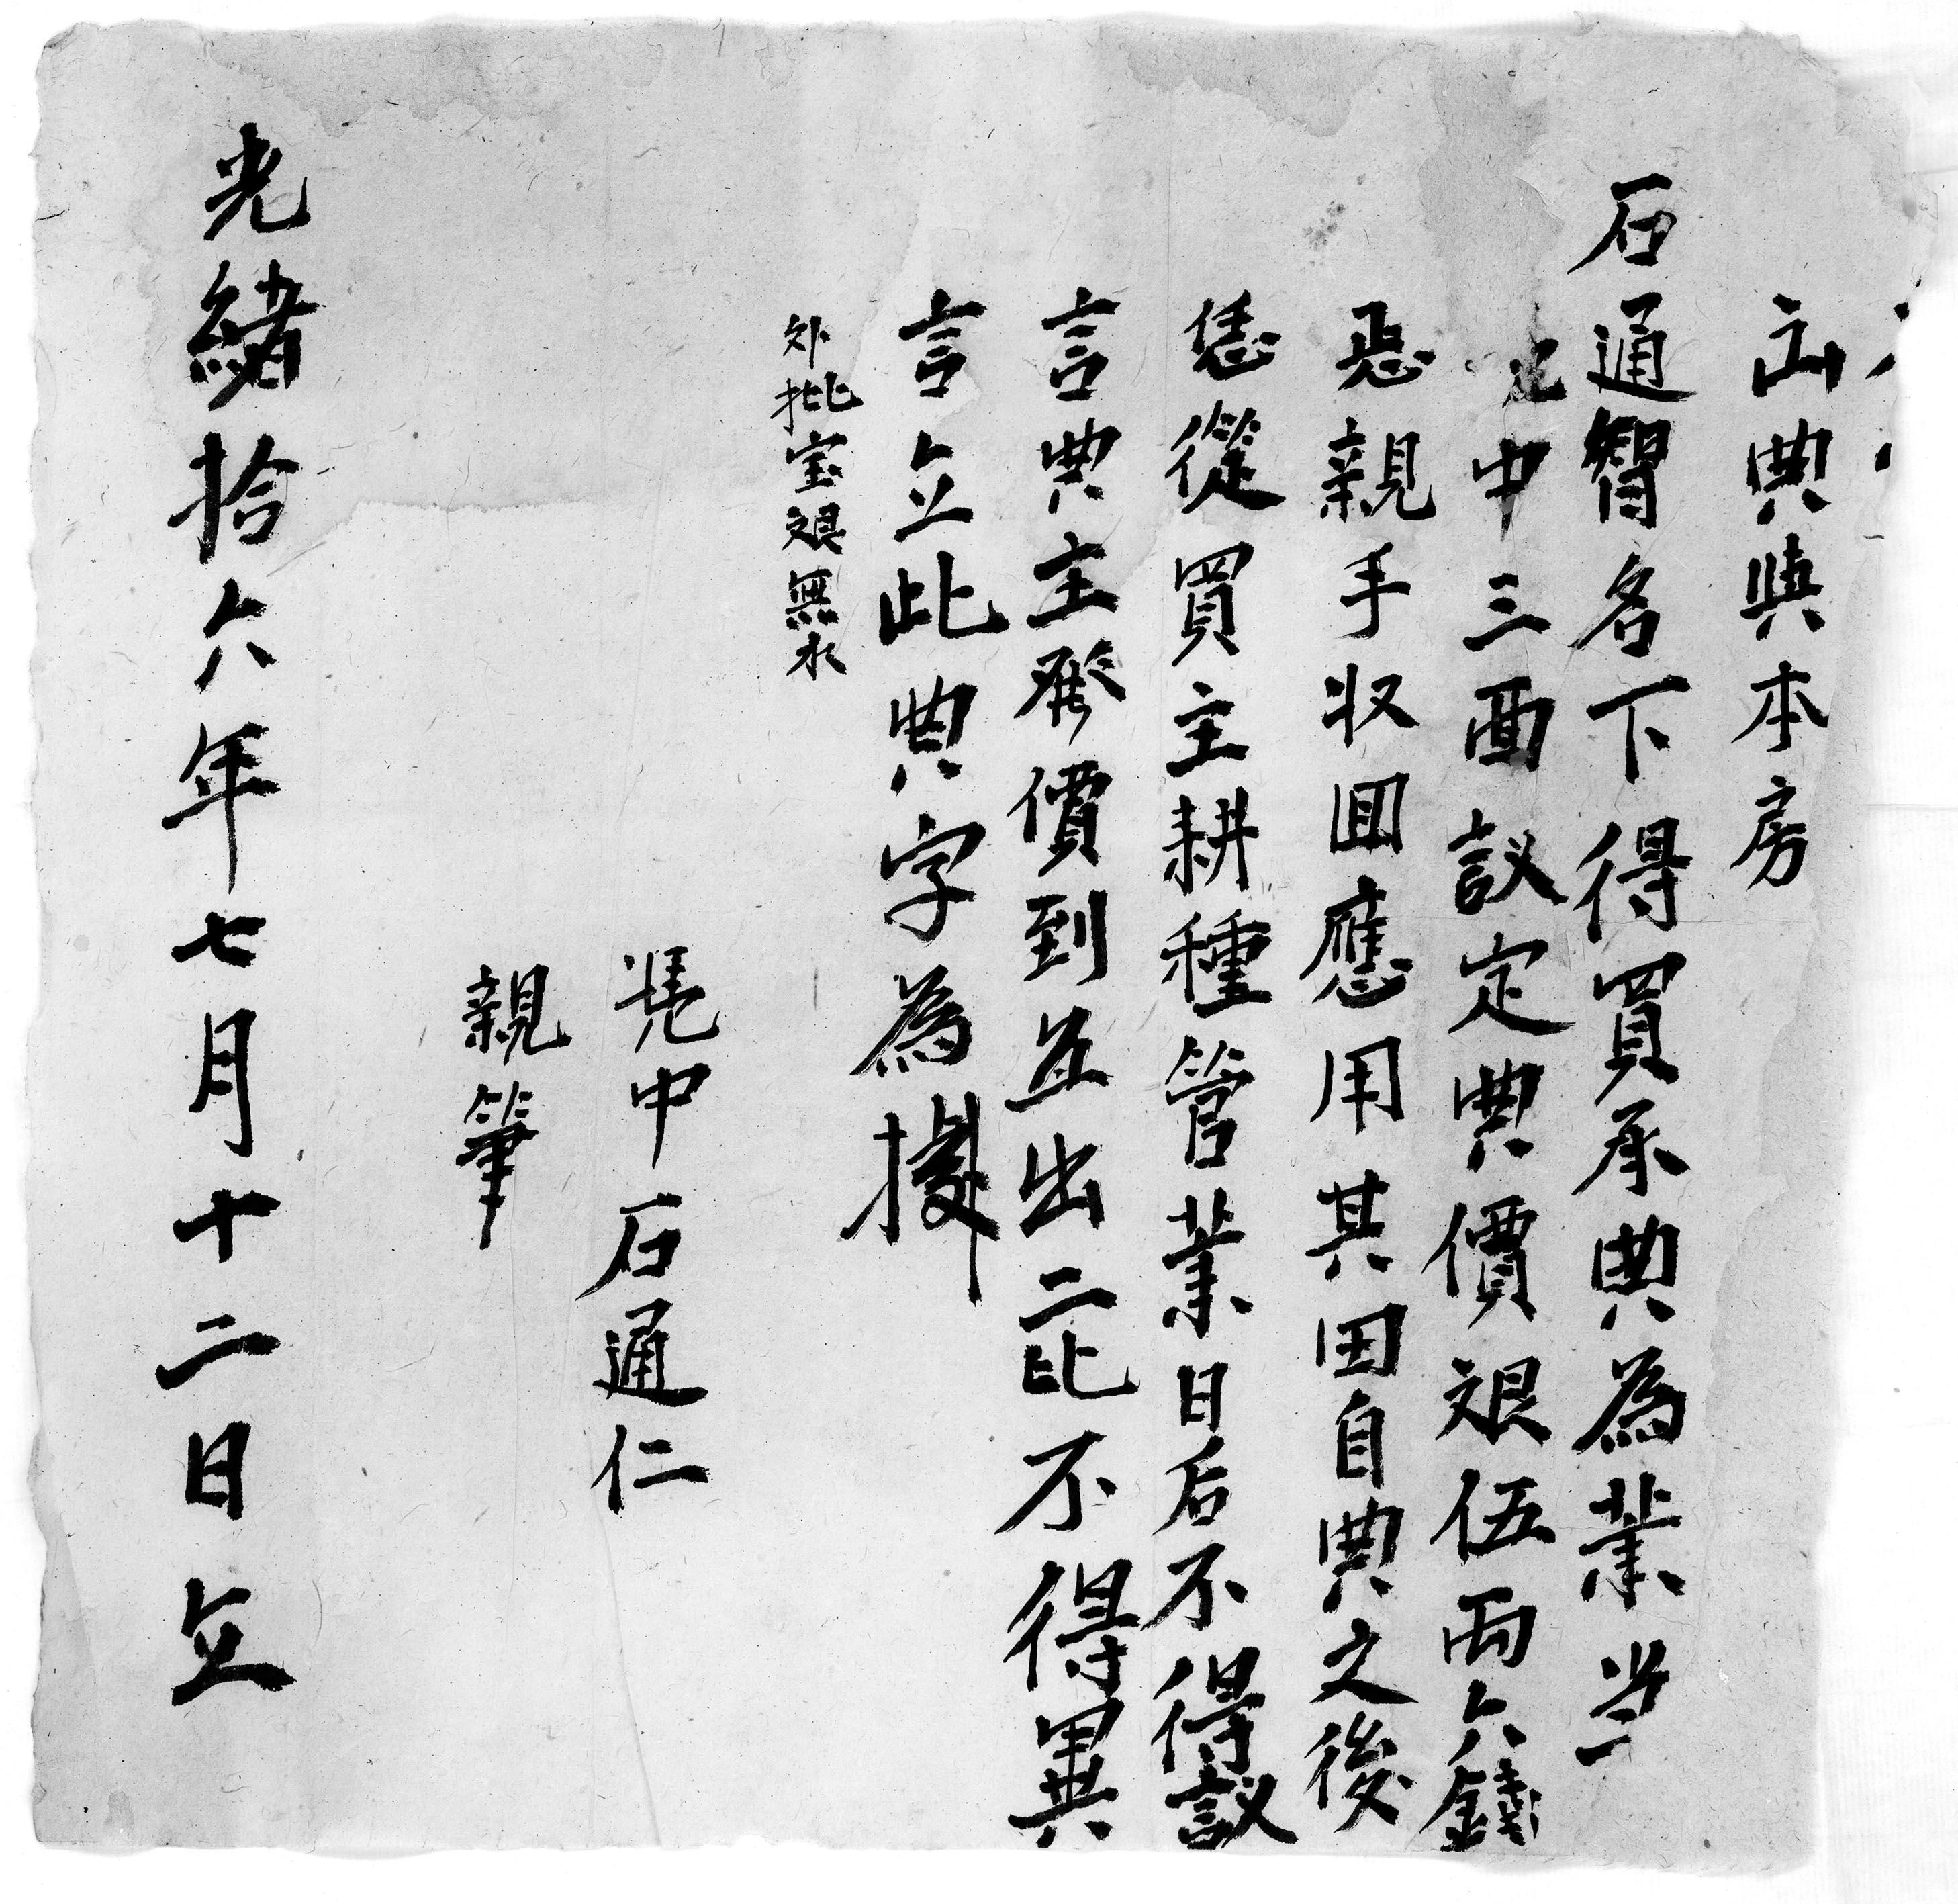 山典與本房
石通智名下得買承典為業当
中三面議定典價艮伍両六錢
恁親手収囬應用其田自典之後
恁從買主耕種管業日后不得議
言典主俻價到並出二比不得異
言立此典字為據
外批宝艮無水
凭中石通仁
親筆
光緒拾六年七月十二日立